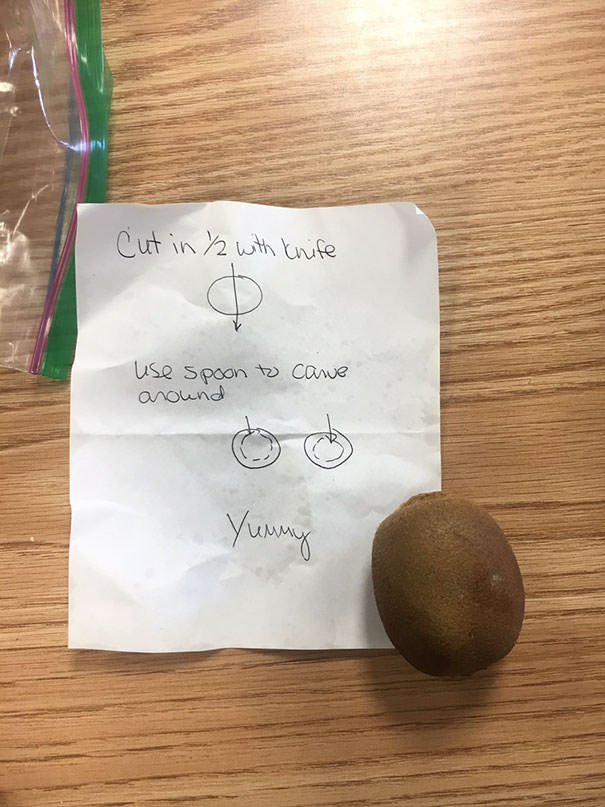 Cut in ½ with knife
use spoon to carve
around
Yummy